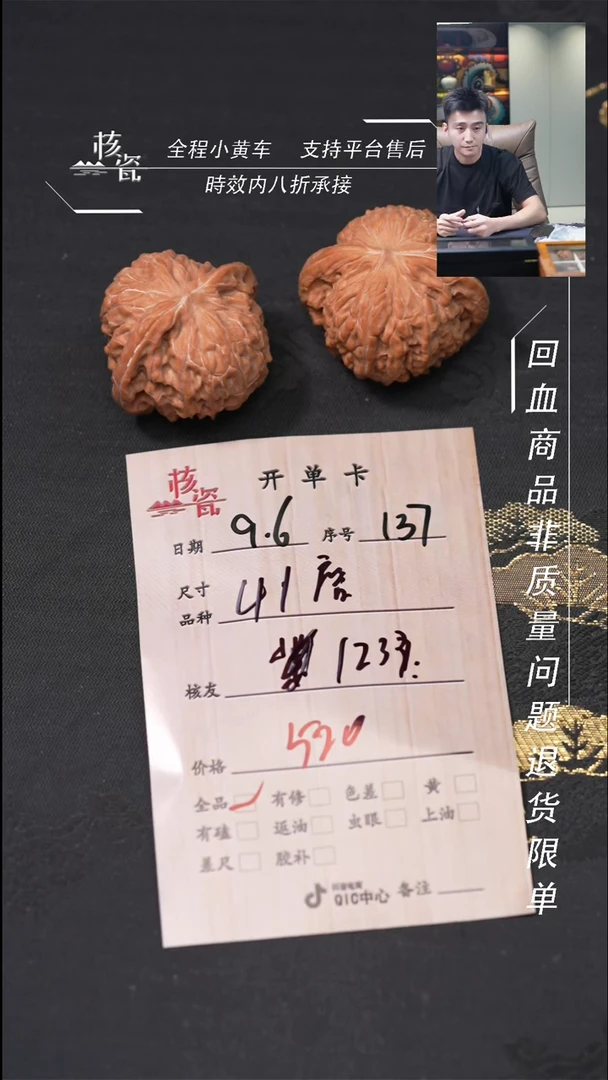 核瓷
全程小黄车 支持平台售后
時效内八折承接
回血商品非质量问题退货限单
核瓷
开单卡
日期 9.6 序号 137
尺寸
品种 41
核友 123
价格 520
全品 有修 色差 黄
有磕 返油 虫眼 上油
差尺 胶补
抖音电商
QIC中心 备注